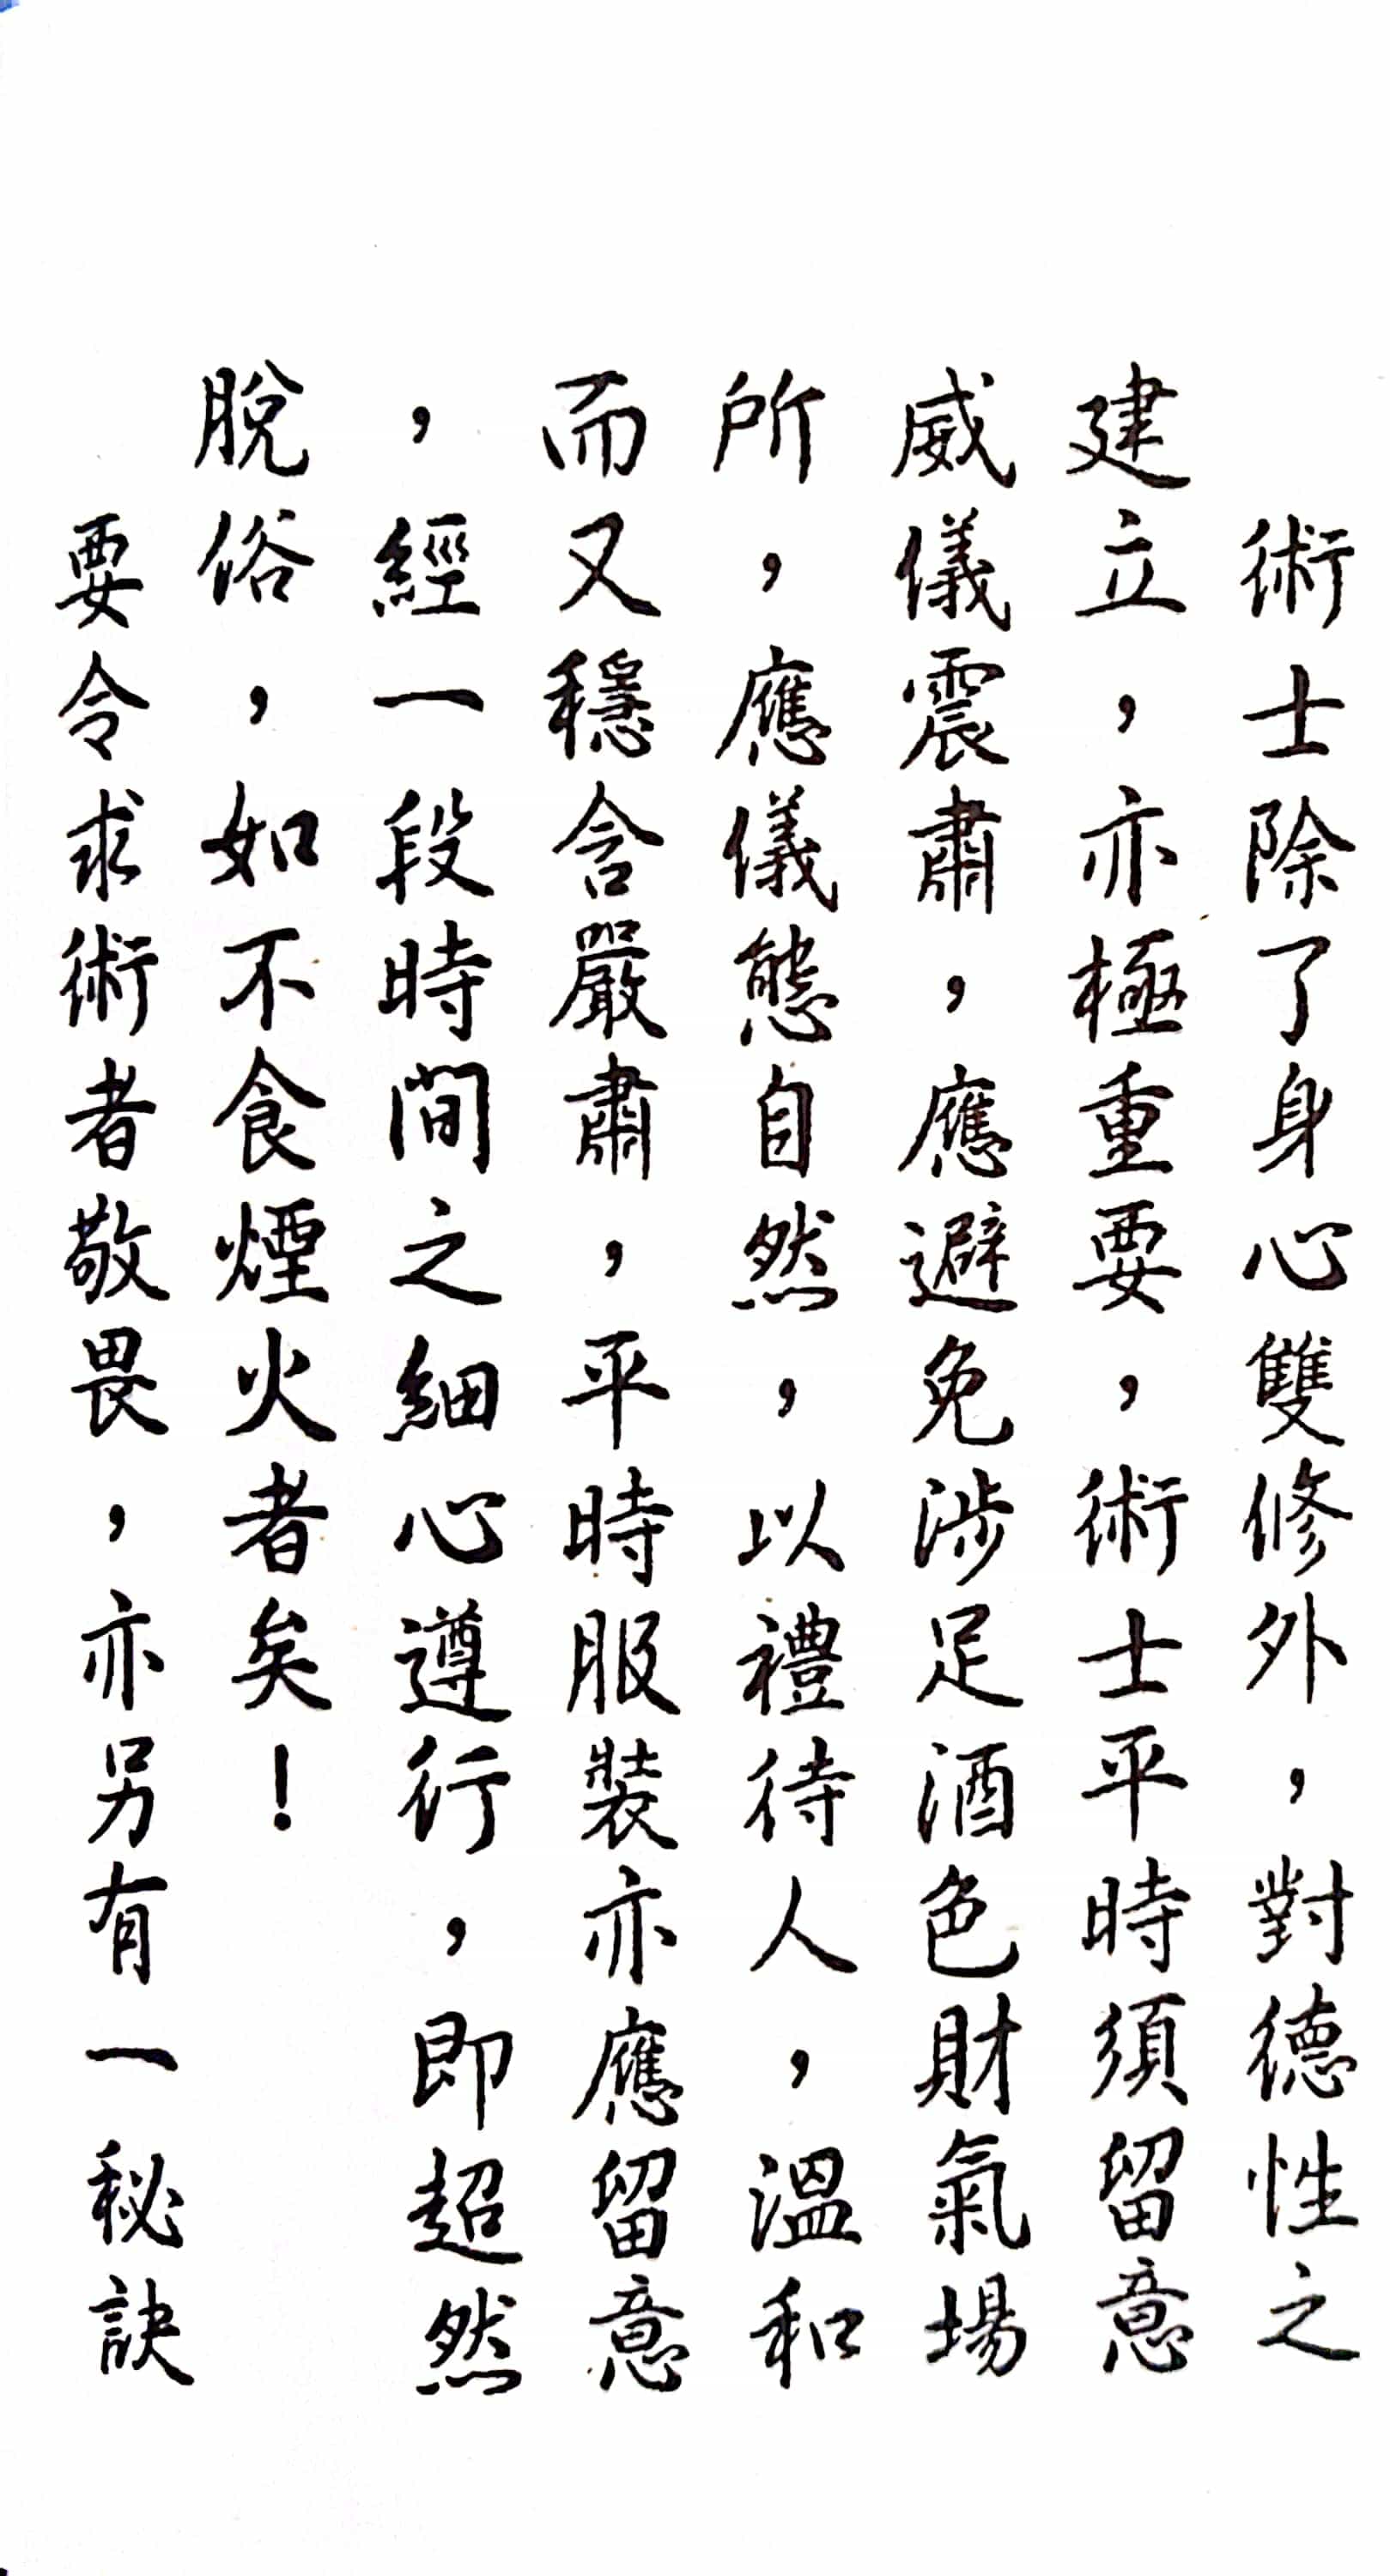 術士除了身心雙修外,對德性之
建立,亦極重要,術士平時須留意
威儀震肅,應避免涉足酒色財氣場
所,應儀態自然,以禮待人,溫和
而又穩含嚴肅,平時服裝亦應留意
,經一段時間之細心遵行,即超然
脫俗,如不食煙火者矣!
要令求術者敬畏,亦另有一秘訣